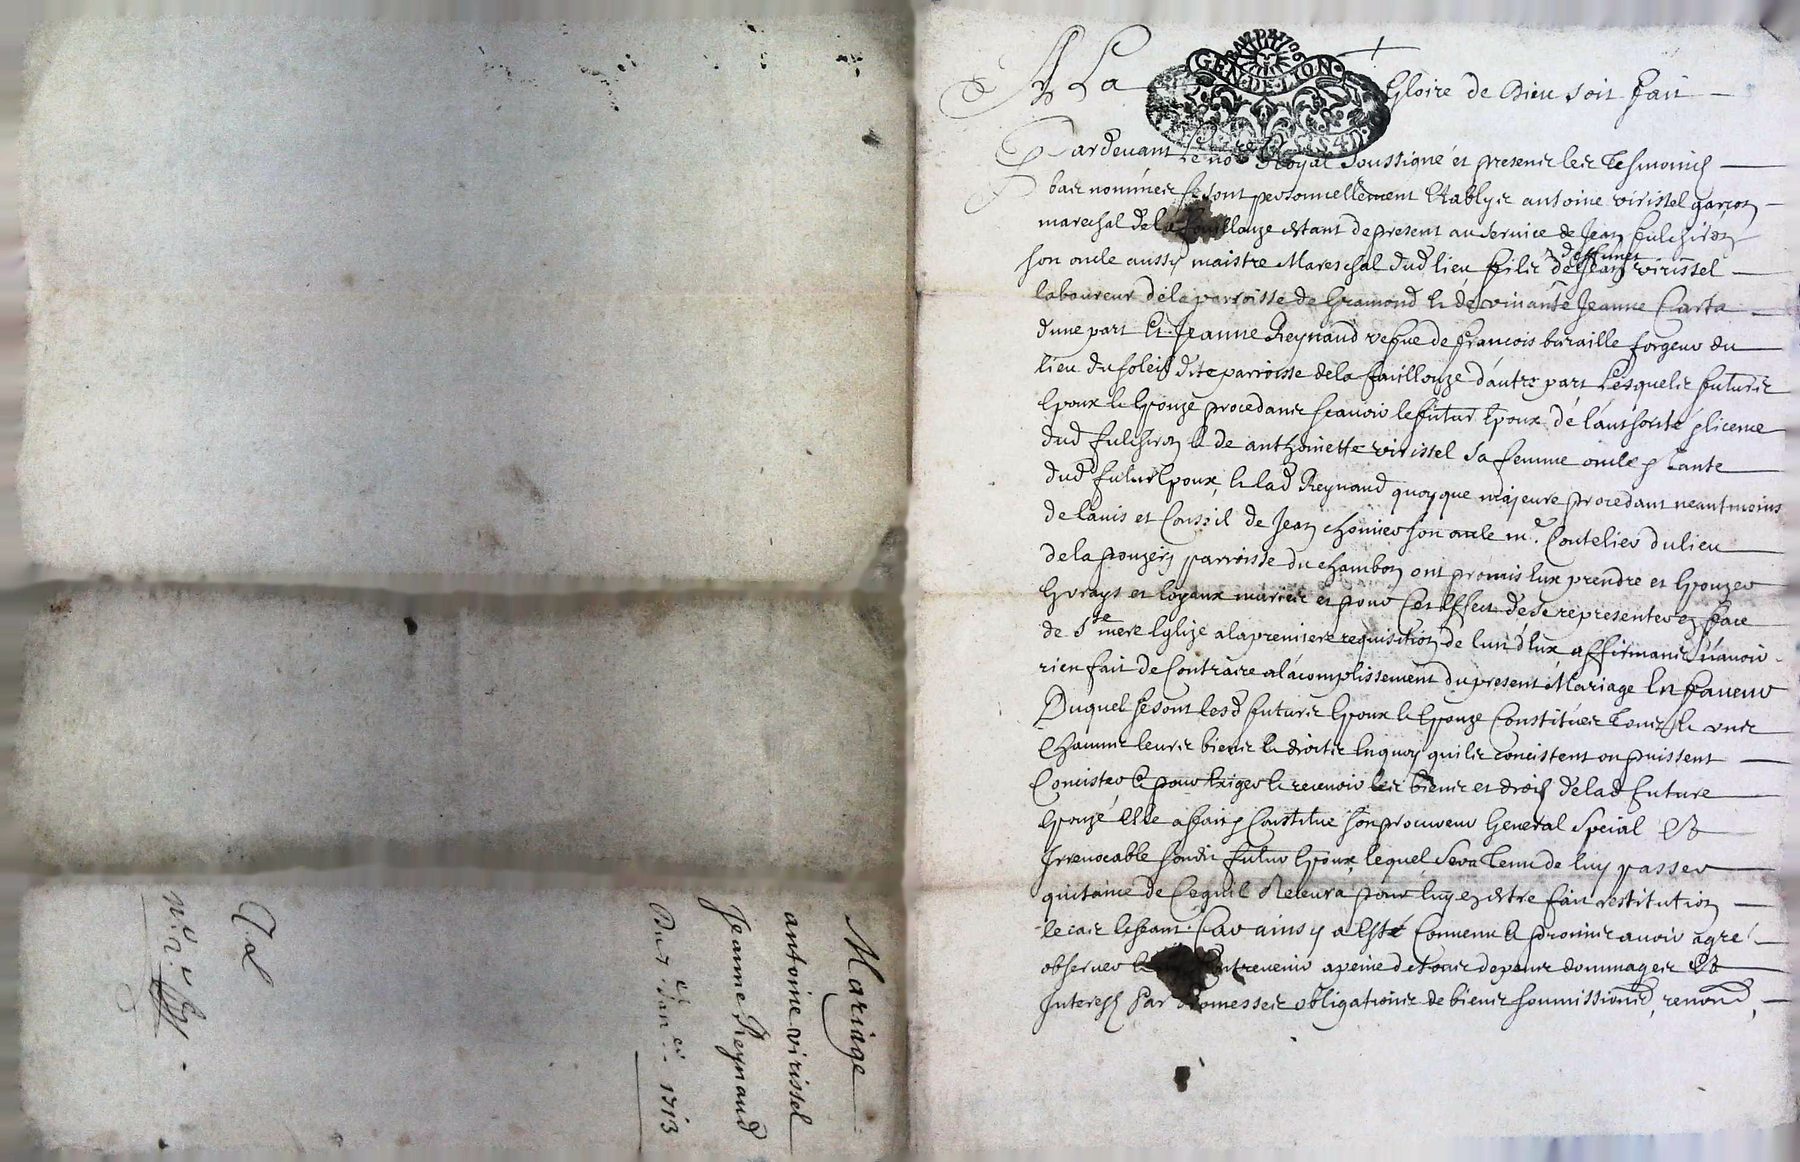 Mariage
antoine virissel
Jeanne Reynaud
Du 7 Jan 1713
A La Gloire de Dieu soit fait
GEN·DE·LION
Pardevant Le no.re Royal soussigné et presents les tesmoings
bas nommes se sont personnellement Etablys antoine virissel garçon
mareschal de la fouillouze estant de present au service de Jean fulchiron
son oncle aussy maistre Mareschal dud lieu fils de deffunct Jean virissel
laboureur de la parroisse de Gramond & de vivante Jeanne Carta
d'une part Et Jeanne Reynaud vefve de francois buraille forgeur du
lieu du soleil dite parroisse de la fouillouze d'autre part Lesquels futurs
Epoux & Epouze procedants scavoir le futur Epoux de l'authorité & licence
dud fulchiron & de anthoinette virissel sa femme oncle & tante
dud futur Epoux, & lad Reynaud quoyque majeure procedant neantmoins
de l'avis et Conseil de Jean chomier son oncle m.e Coutelier du lieu
de la parroisse du chambon ont promis Eux prendre et Epouzer
Et vrays et loyaux mariés et pour Cet Effect de se representer en face
de S.te mere Eglize a la premiere requisition de l'un d'Eux affirmants n'avoir
rien fait de Contraire a l'acomplissement du present Mariage En faveur
Duquel se sont lesd futurs Epoux & Epouze Constitués tous & uns
Chacuns leurs biens & droits En quoy qu'ils concistent ou puissent
Concister & pour Exiger & recevoir les biens et droits de lad future
Epouze Elle a fait & Constitue son procureur General Special Et
Irrevocable sondit futur Epoux, lequel sera tenu de luy passer
quitance de Ce qu'il Recevra pour luy en Estre fait restitution
le cas Escheant Car ainsy a Esté Convenu & promis avoir agré
observer contrevenir a peine de tous depens dommages Et
Interests Par promesses obligations de biens soumissions, renond,